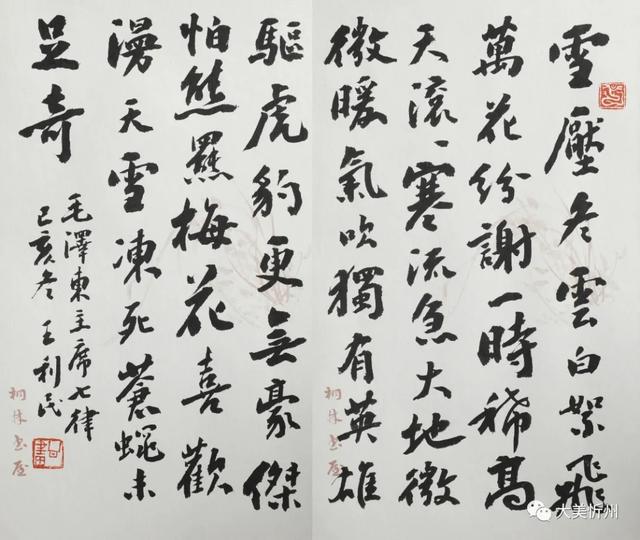 雪壓冬雲白絮飛
萬花紛謝一時稀高
天滚〻寒流急大地微
微暖氣吹獨有英雄
桐林书屋
驅虎豹更無豪傑
怕熊羆梅花喜歡
漫天雪凍死蒼蠅未
足奇
毛澤東主席七律
己亥冬 王利民
桐林书屋
大美忻州